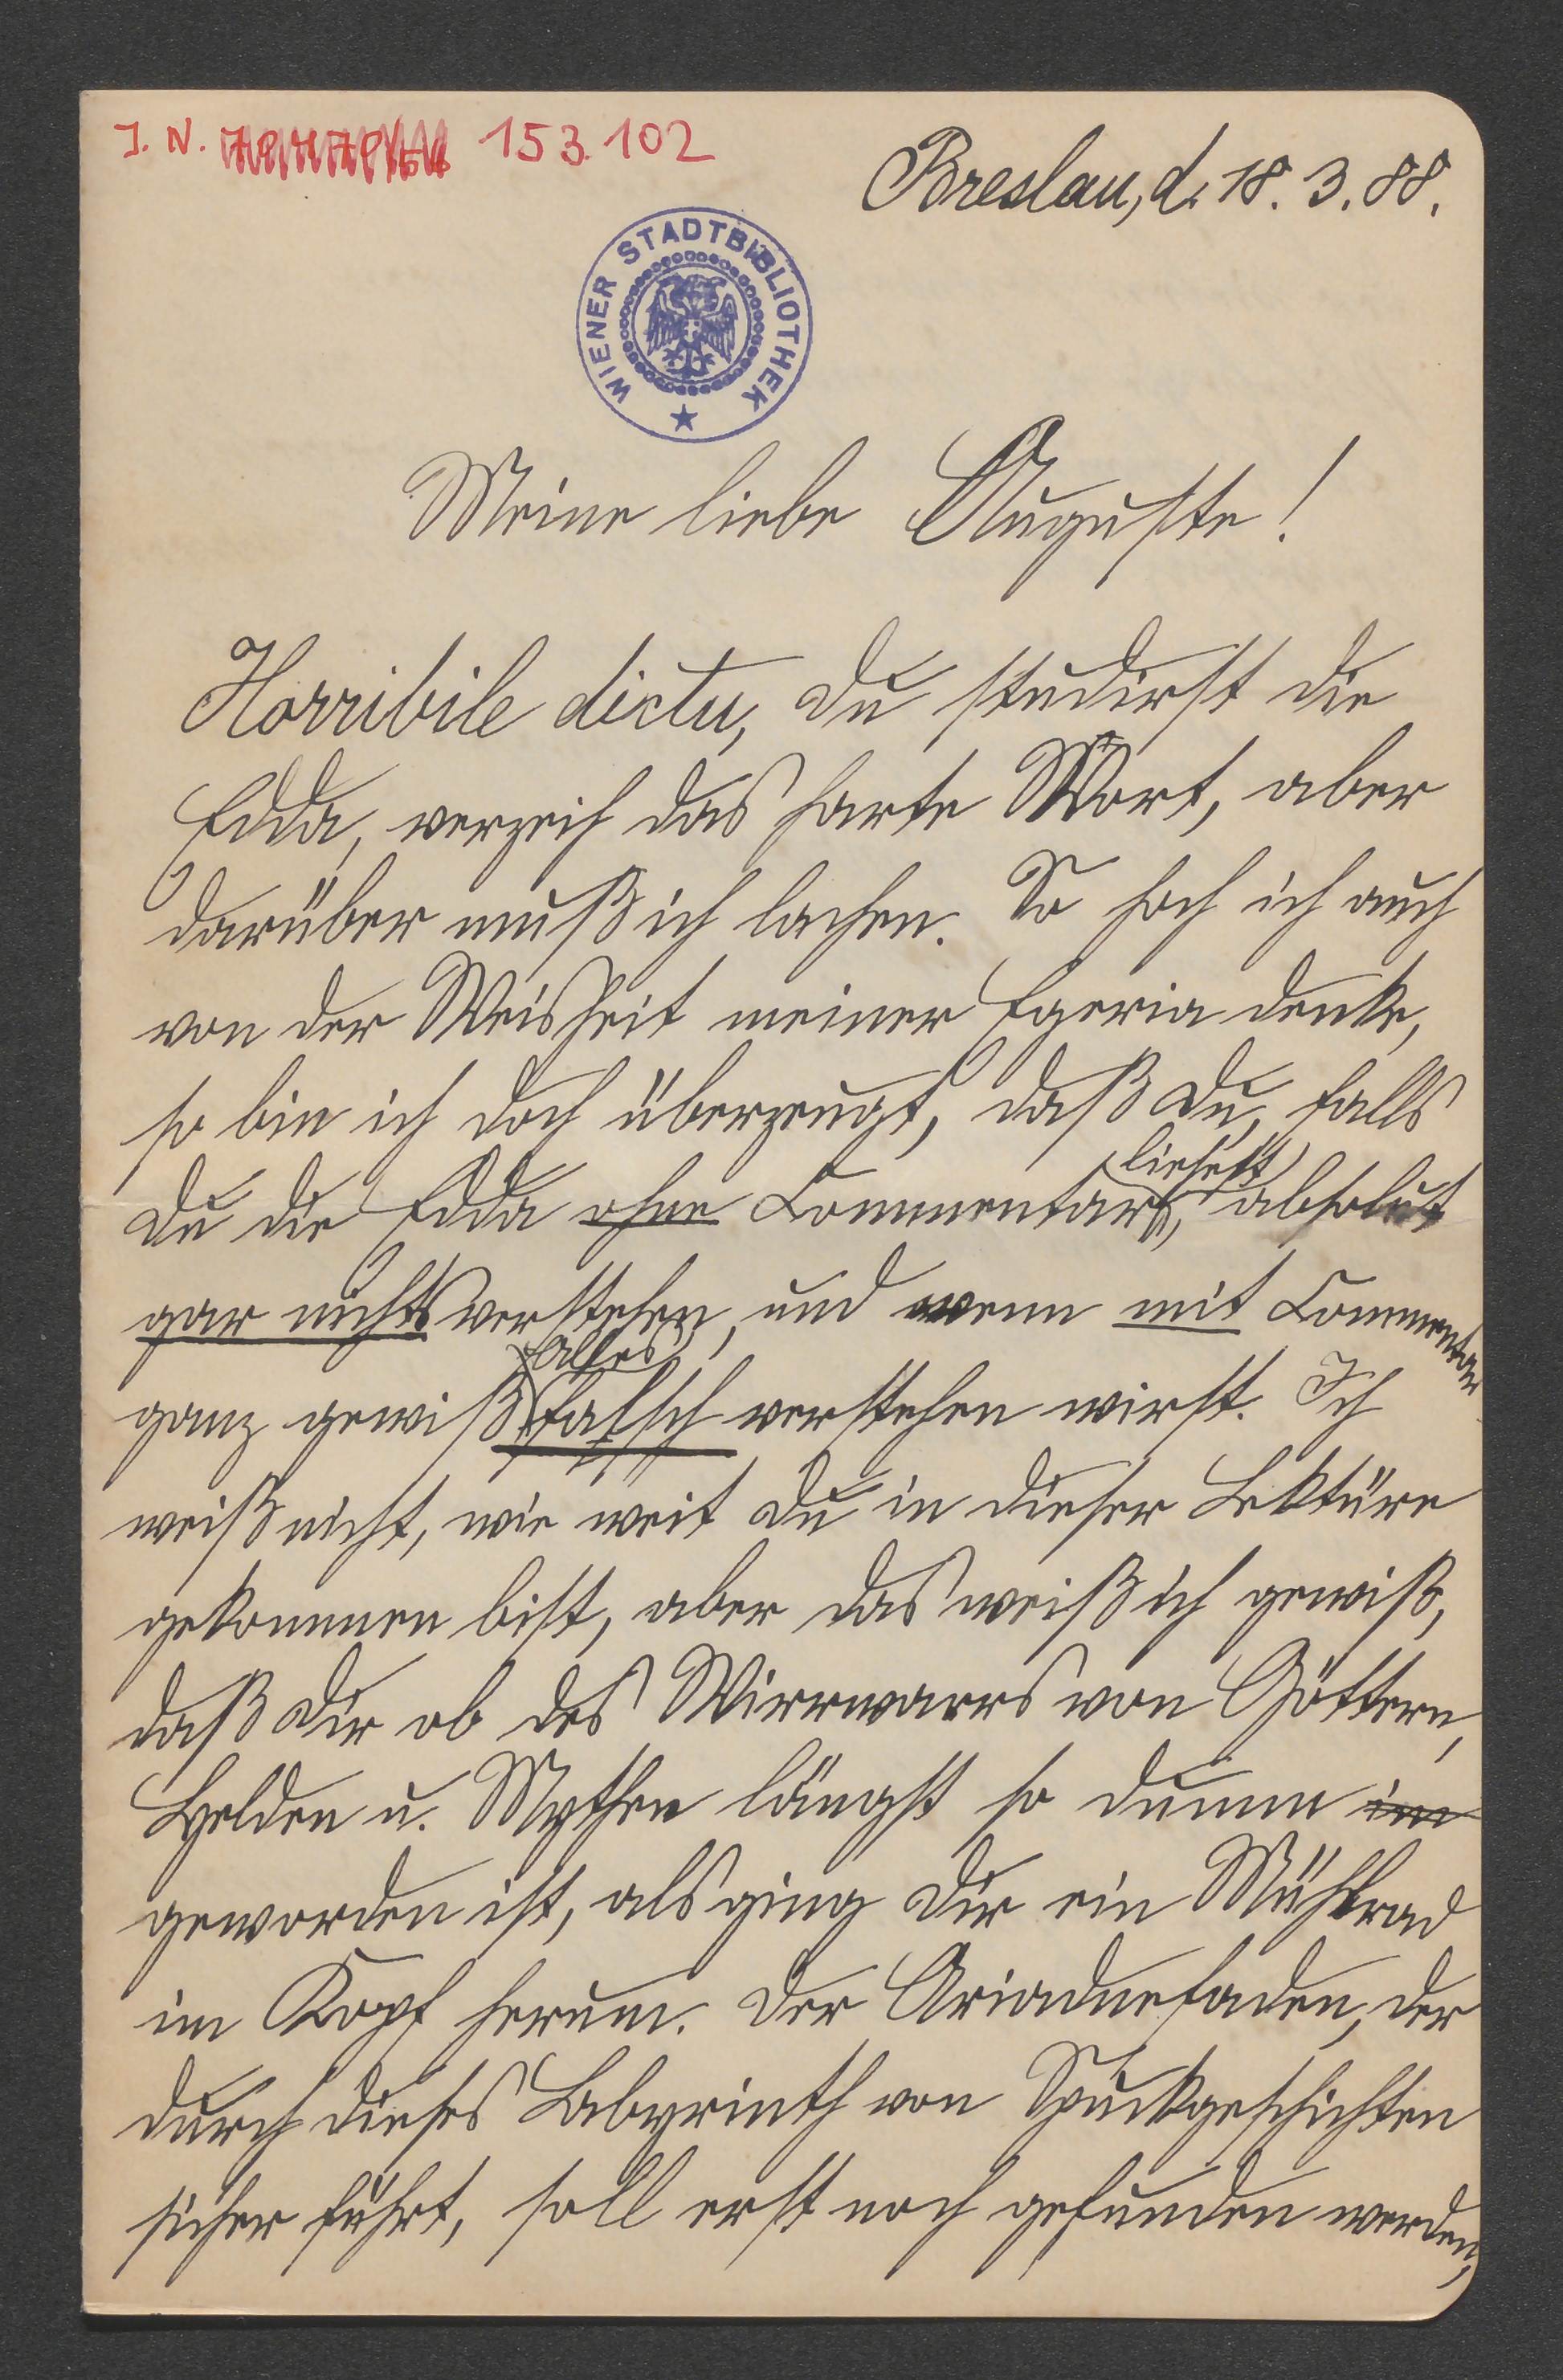 J. N. 153.102
Breslau, d. 18. 3. 88.
WIENER STADTBIBLIOTHEK
Meine liebe Auguste!
Horribile dictu, Du studirst die
Edda, verzeih das harte Wort, aber
darüber muß ich lachen. So hoch ich auch
von der Weisheit meiner Egeria denke,
so bin ich doch überzeugt, daß Du, falls
liesest
Du die Edda ohne Commentar, absolut
gar nichts verstehen, und wenn mit Commentar
Alles
ganz gewiß falsch verstehen wirst. Ich
weiß nicht, wie weit Du in dieser Lektüre
gekommen bist, aber das weiß ich gewiß,
daß Dir ob des Wirrwarrs von Göttern,
Helden u. Mythen längst so dumm im
geworden ist, als ging Dir ein Mühlrad
im Kopf herum. Der Ariadnefaden, der
durch dieses Labyrinth von Spukgeschichten
sicher führt, soll erst noch gefunden werden,